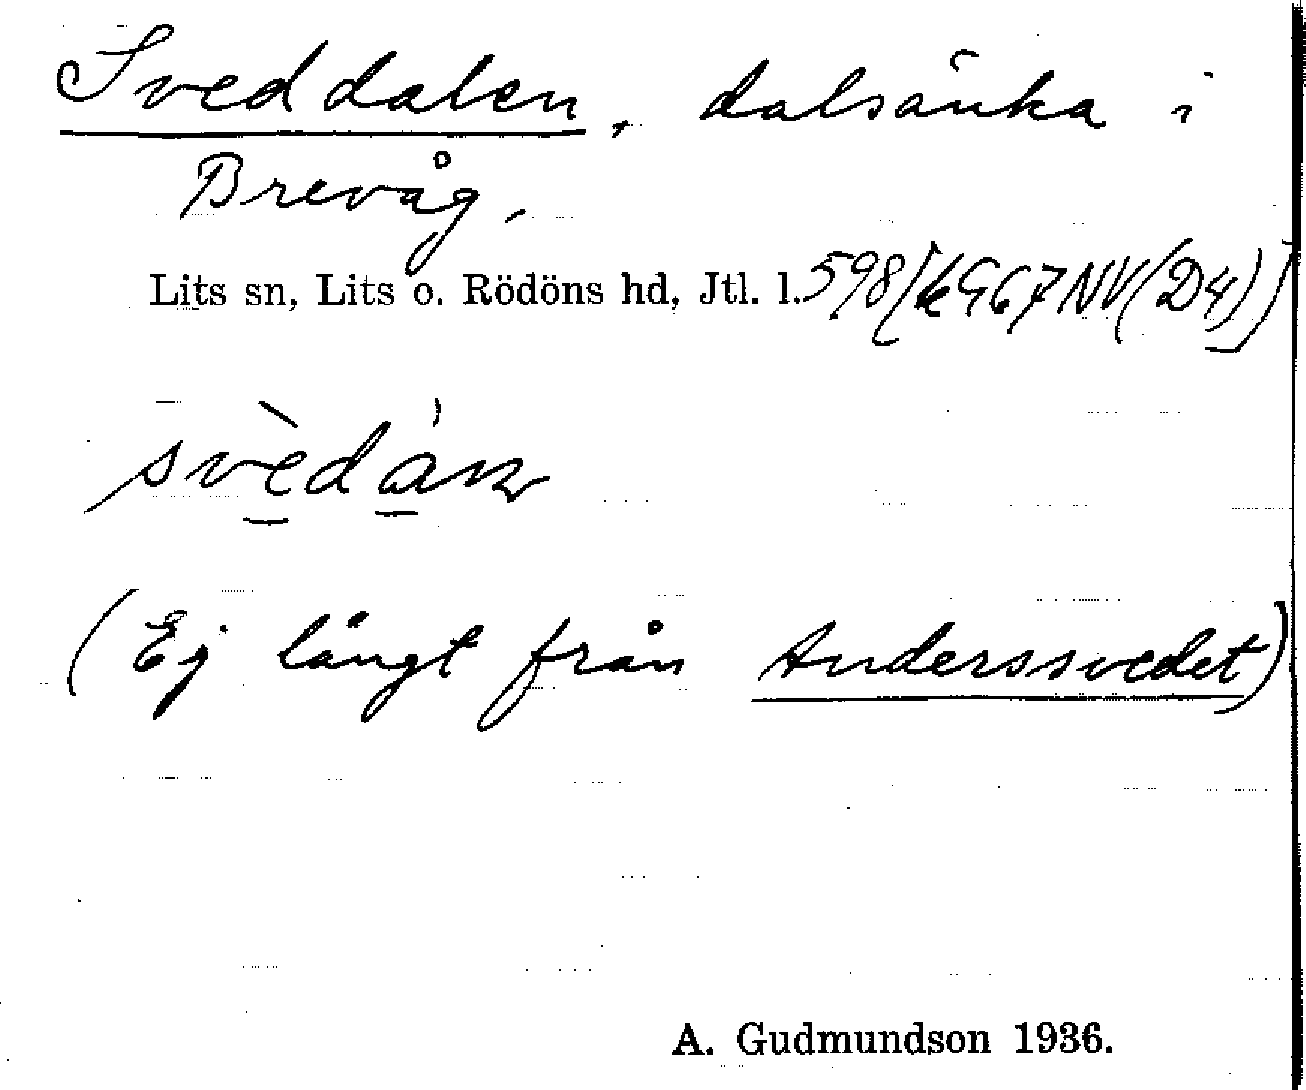 Sveddalen, dalsänka i
Brevåg,
Lits sn, Lits o. Rödöns hd, Jtl. l. 598/[6967 NV(D4)]
(Ej långt från Anderssvedet)
A. Gudmundson 1936.